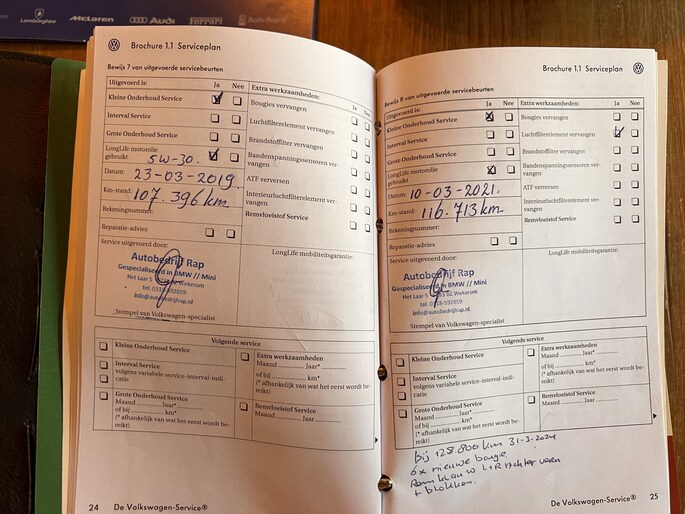 Lamborghini
McLaren
Audi
Ferrari
Rolls-Royce
Brochure 1.1 Serviceplan
Bewijs 7 van uitgevoerde servicebeurten
Uitgevoerd is: Ja Nee
Kleine Onderhoud Service
Interval Service
Grote Onderhoud Service
LongLife motorolie
gebruikt 5W-30.
Datum: 23-03-2019.
Km-stand: 107.396 km
Rekeningnummer:
Reparatie-advies
Service uitgevoerd door:
Autobedrijf Rap
Gespecialiseerd in BMW // Mini
Het Laar 5 Wekerom
tel. 0318-592859
info@autobedrijfrap.nl
Stempel van Volkswagen-specialist
Extra werkzaamheden: Ja Nee
Bougies vervangen
Luchtfilterelement vervangen
Brandstoffilter vervangen
Bandenspanningssensoren ver-
vangen
ATF verversen
Interieurluchtfilterelement ver-
vangen
Remvloeistof Service
LongLife mobiliteitsgarantie:
Volgende service
Kleine Onderhoud Service
Interval Service
volgens variabele service-interval-indi-
catie
Grote Onderhoud Service
Maand ........ Jaar*
of bij ........ km*
(* afhankelijk van wat het eerst wordt be-
reikt)
Extra werkzaamheden
Maand ........ Jaar*
of bij ........ km*
(* afhankelijk van wat het eerst wordt be-
reikt)
Remvloeistof Service
Maand ........ Jaar*
24 De Volkswagen-Service®
Brochure 1.1 Serviceplan
Bewijs 8 van uitgevoerde servicebeurten
Uitgevoerd is: Ja Nee
Kleine Onderhoud Service
Interval Service
Grote Onderhoud Service
LongLife motorolie
gebruikt
Datum: 10-03-2021.
Km-stand: 116.713 km
Rekeningnummer:
Reparatie-advies
Service uitgevoerd door:
Autobedrijf Rap
Gespecialiseerd in BMW // Mini
Het Laar 5 Wekerom
tel. 0318-592859
info@autobedrijfrap.nl
Stempel van Volkswagen-specialist
Extra werkzaamheden: Ja Nee
Bougies vervangen
Luchtfilterelement vervangen
Brandstoffilter vervangen
Bandenspanningssensoren ver-
vangen
ATF verversen
Interieurluchtfilterelement ver-
vangen
Remvloeistof Service
LongLife mobiliteitsgarantie:
Volgende service
Kleine Onderhoud Service
Interval Service
volgens variabele service-interval-indi-
catie
Grote Onderhoud Service
Maand ........ Jaar*
of bij ........ km*
(* afhankelijk van wat het eerst wordt be-
reikt)
Extra werkzaamheden
Maand ........ Jaar*
of bij ........ km*
(* afhankelijk van wat het eerst wordt be-
reikt)
Remvloeistof Service
Maand ........ Jaar*
bij 128.800 km 31-3-2024
6x nieuwe bougie
Remklauw L+R Achter veren
+ blokken.
De Volkswagen-Service® 25